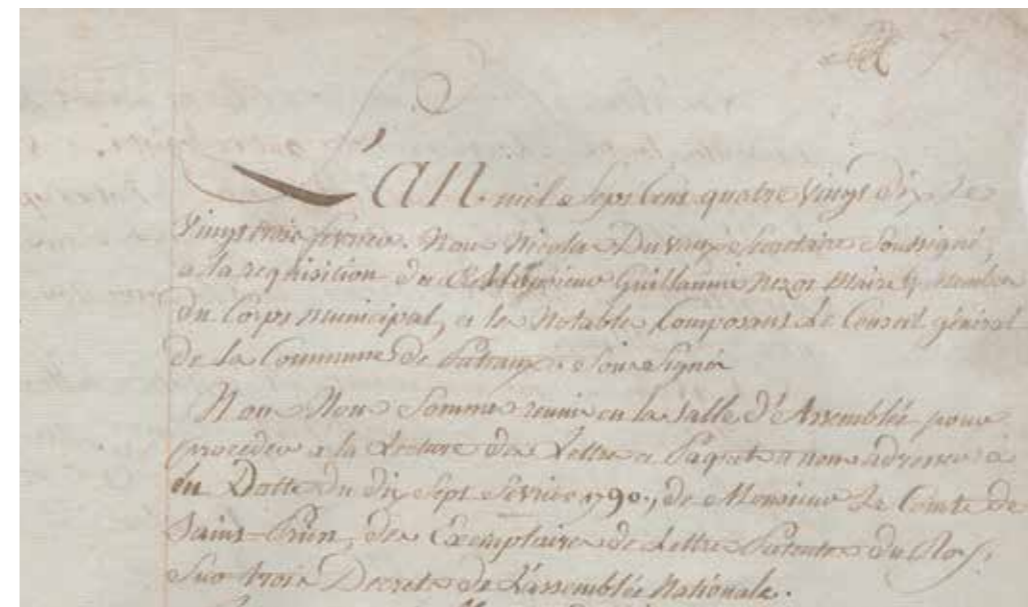 L'an mil Sept Cent quatre Vingt dix, le
Vingt trois fevrier. Nous Nicolas Secretaire Soussigné,
a la requisition de Guillaume Maire & membres
du Corps municipal, et les Notables Composant Le Conseil général
de la Commune de Sous Signés
Nous Nous Sommes reunis en la Salle d'Assemblée pour
proceder a la Lecture des Lettres et Paquets a nous adressés
en Datte du dix Sept Fevrier 1790, de Monsieur Le Comte de
Saint-Priest, des Exemplaires de Lettres Patentes du Roy,
Sur trois Decrets de L'assemblée Nationale.